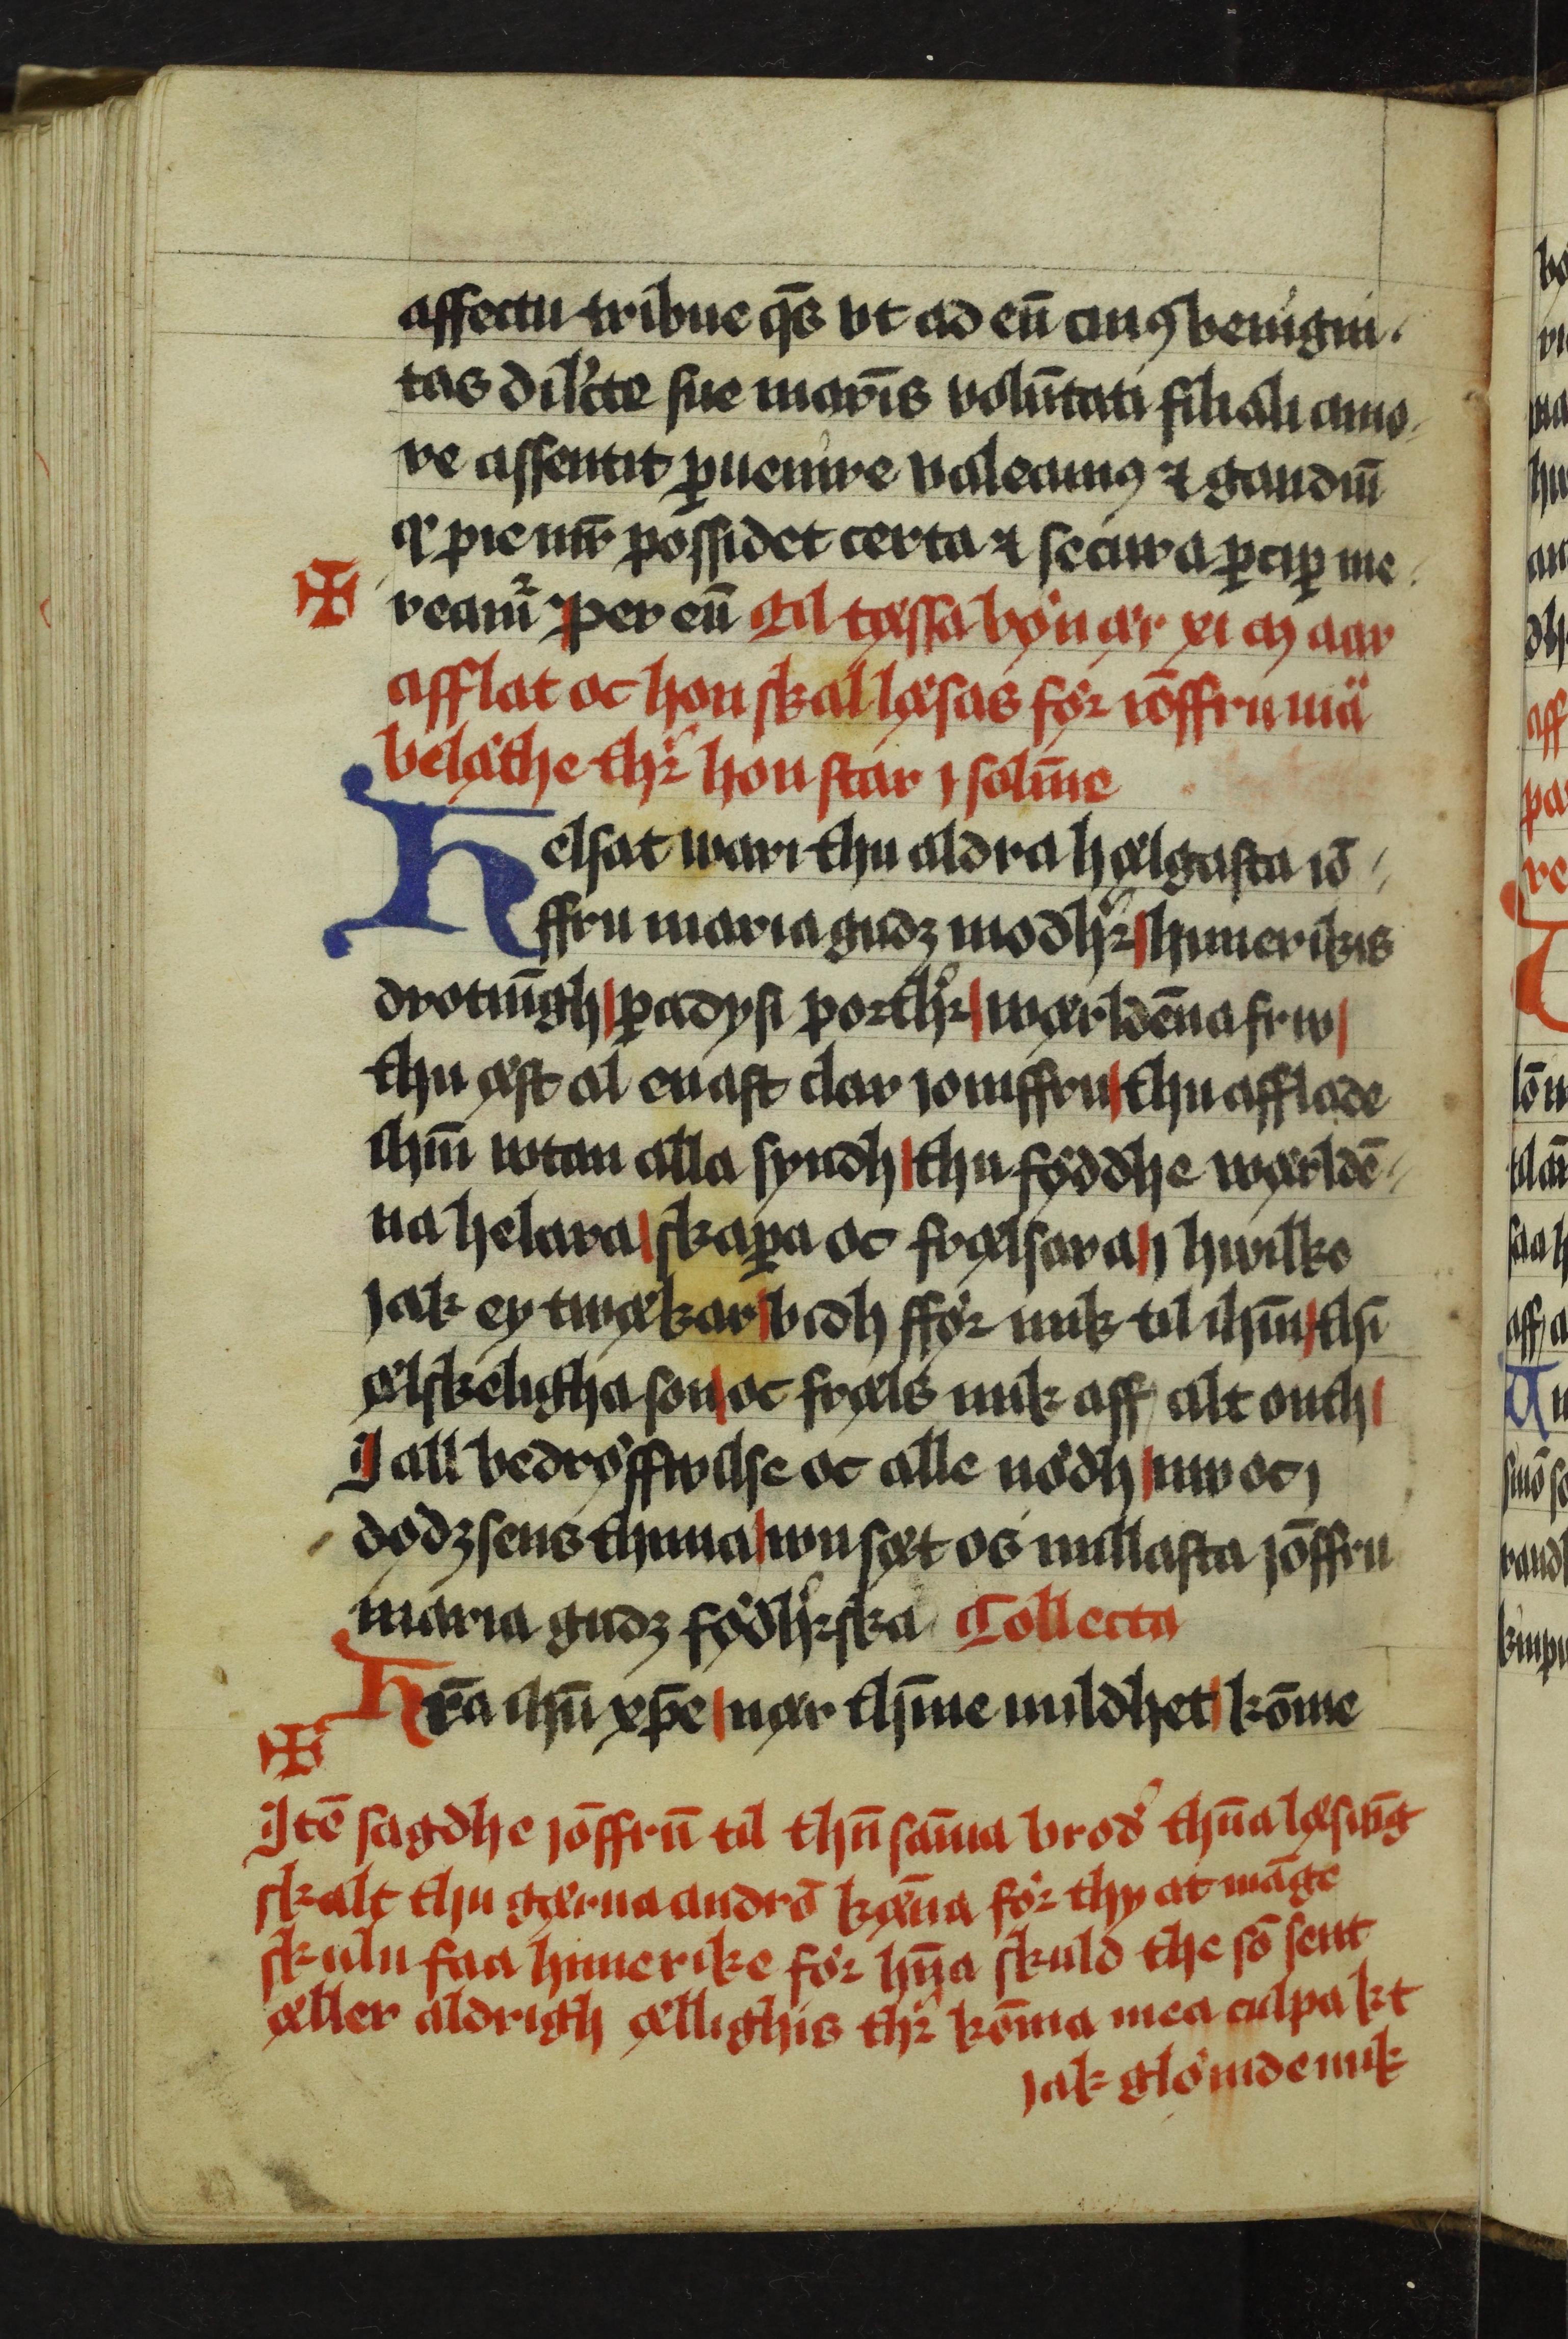 affectu tribue q̄s vt ad eū cuiꝯ benigni
tas dilc̄te sue mat̄ris volūtati filiali amo
re assentit ꝑuenire valeamꝯ ⁊ gaudiū
qͥ pie mr̄ possidet certa ⁊ secura ꝑciꝑ me
ream̄r Per eū Til tæssa bøn ær xi m aar
afflat oc hon skal læsas før iōffru mā
belæthe thr̄ hon star i solīne
Helsat wari thu aldra hælgasta iō
ffru maria gudz modhr̄ himerikis
drotnīgh ꝑadysi porthr̄ wærldēna frw
thu æst al enast clar iomffru thu afflade
ihm̄ wtan alla syndh thu føddhe wærldē
na helara skaꝑa oc frælsara i hwilko
Jak ey twækar bidh ffør mik til ihm̄ thī
ælskeligha son oc fræls mik aff alt onth
J all bedrøffwilse oc alle nødh nw oc i
dødzsens thima wnsæt os millasta jōffru
maria gudz fødhr̄ska Collecta
Hr̄a ihū xp̄e nær thīne mildhet kōme
Jtē sagdhe jōffrū til thn̄ sāma brodr̄ thn̄a læsnīg
skalt thu gærna andrō kæn̄a før thy at māge
skulu faa himerike før hn̄a skuld the sō sent
æller aldrigh ællighis thr̄ kōma mea culpa kt
jak glømde mik